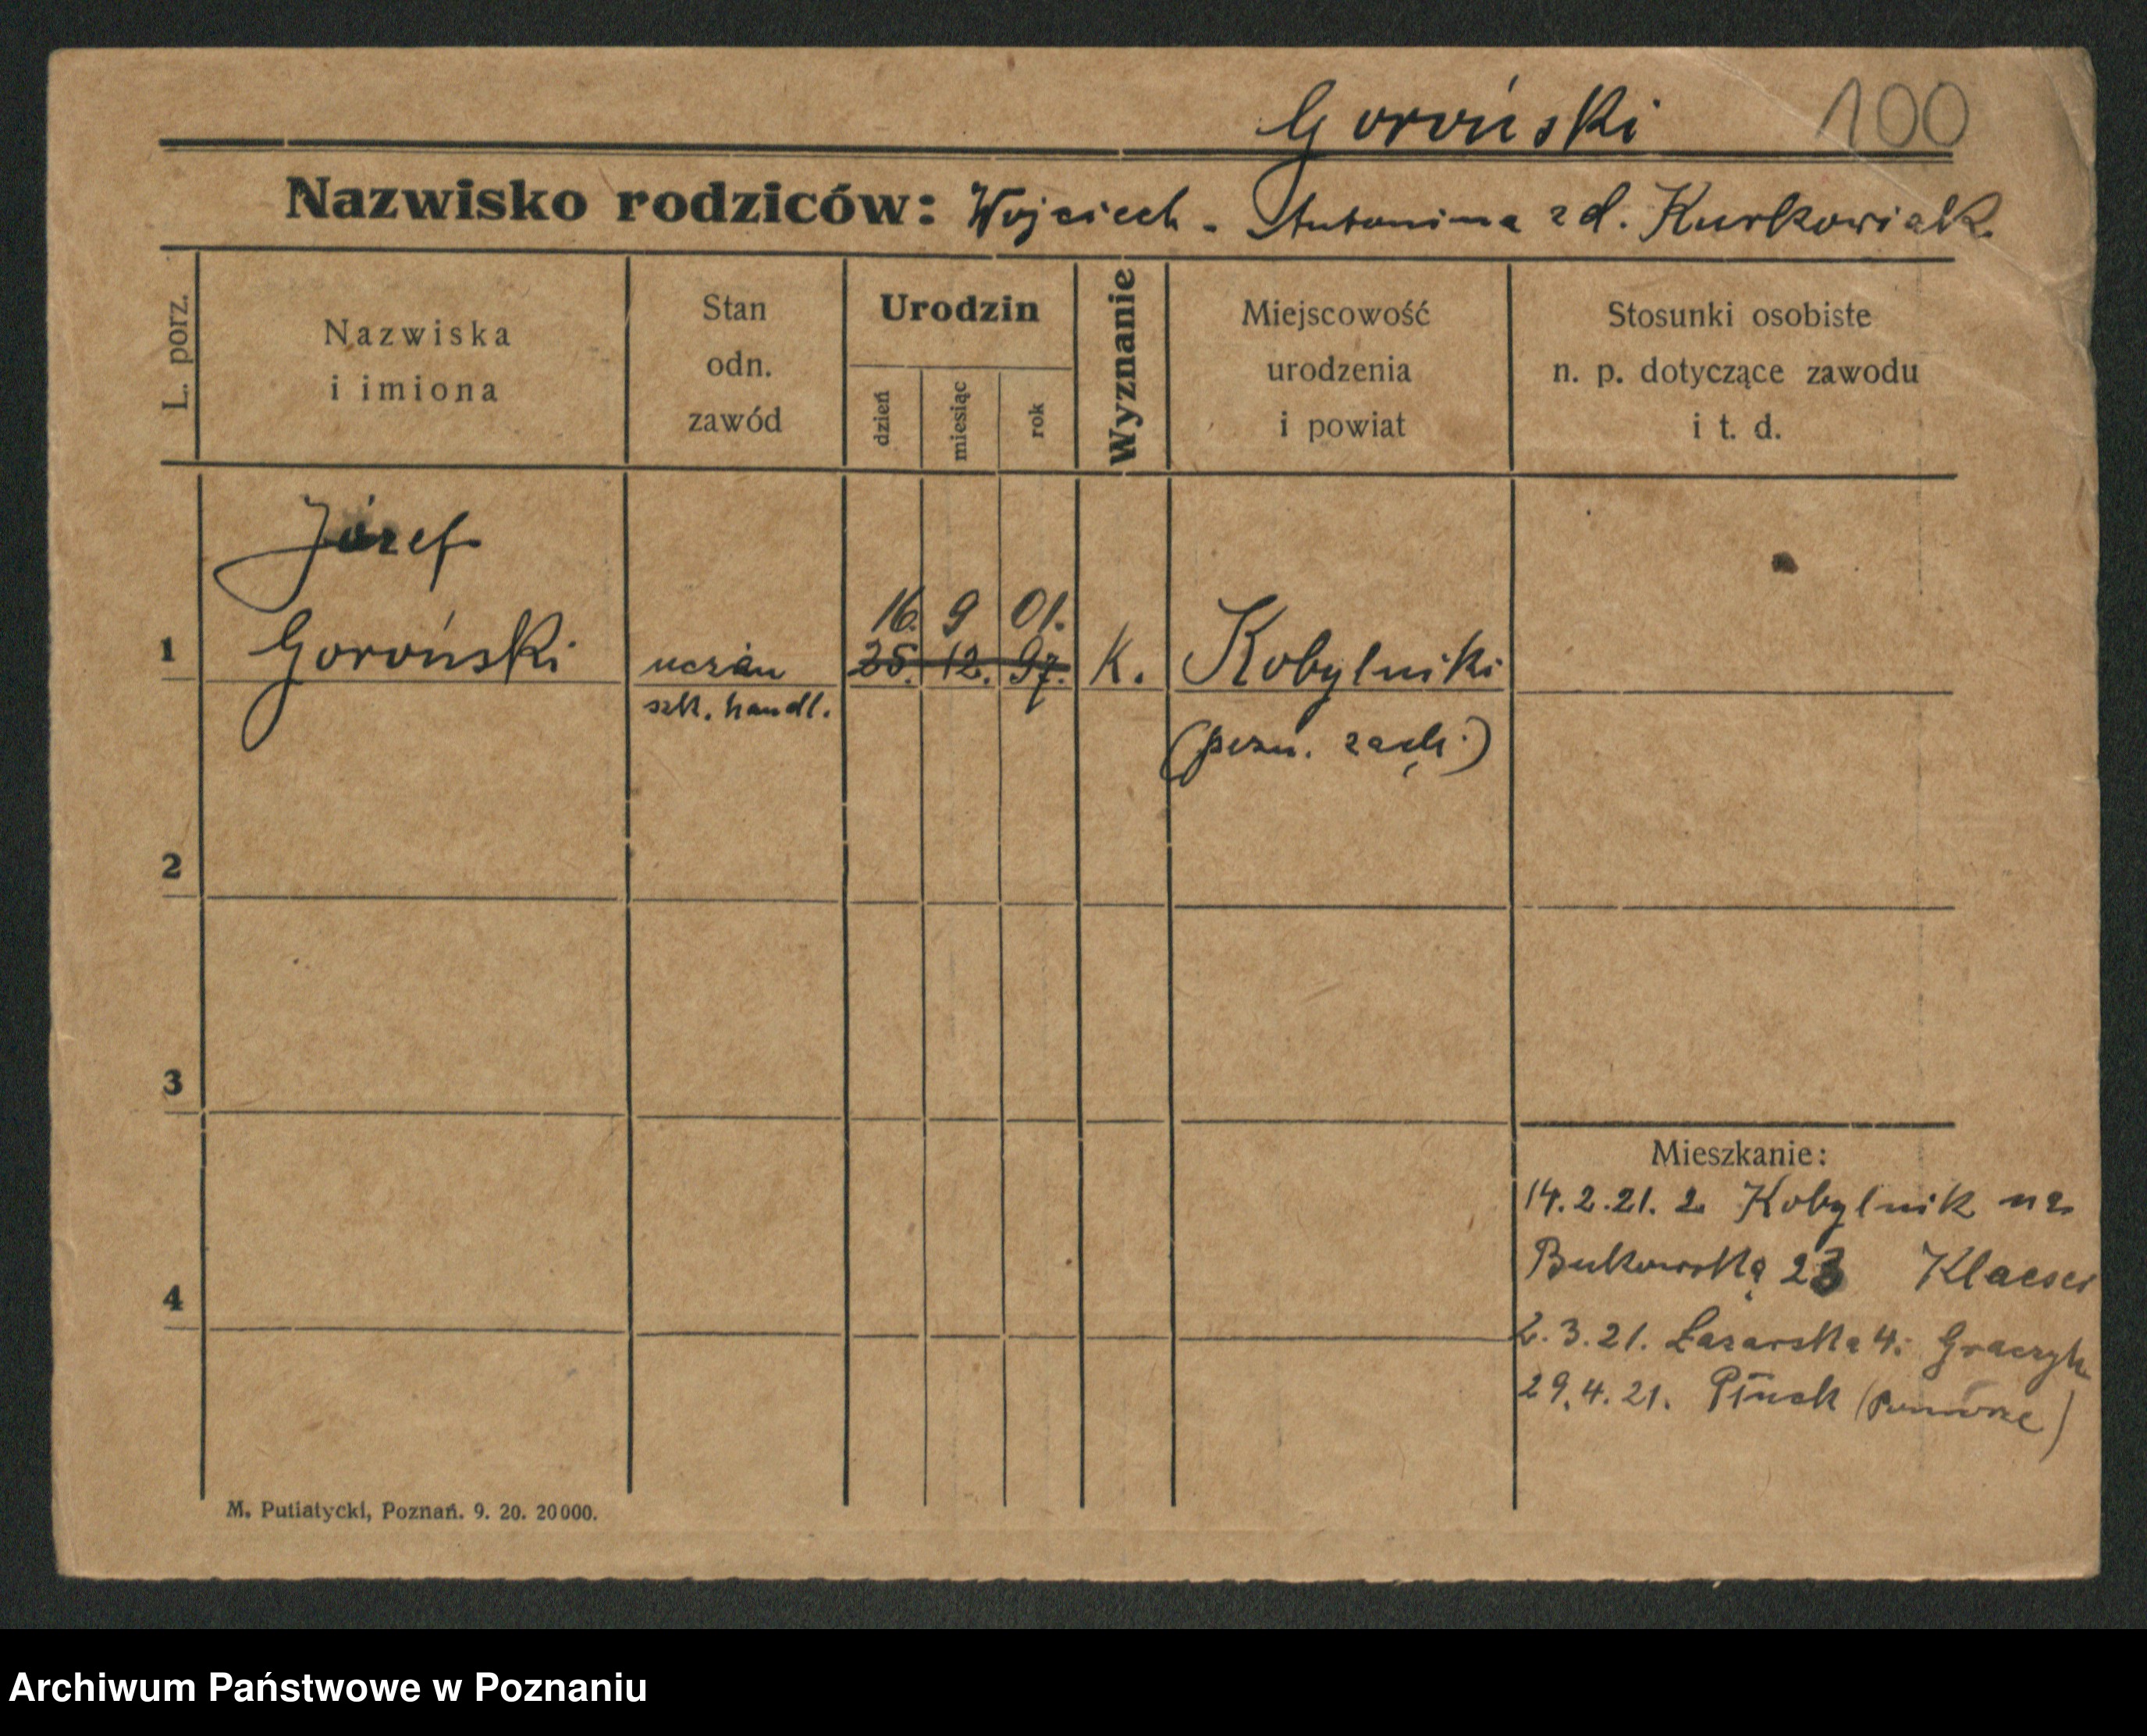 Goroński 100
Nazwisko rodziców: Wojciech - Antonina zd. Kurkowiak
L. porz.
Nazwiska
i imiona
Stan
odn.
zawód
Urodzin
dzień
miesiąc
rok
Wyznanie
Miejscowość
urodzenia
i powiat
Stosunki osobiste
n. p. dotyczące zawodu
i t. d.
Józef
16. 9 01.
1 Goroński uczeń 25. 12. 97. K. Kobylniki
szk. handl.
(pozn. zach.)
2
3
Mieszkanie:
14.2.21. z Kobylnik na
Bukowską 23
4
2.3.21. Łazarska 4. Graczyk
29.4.21. (Pomorze)
M. Putiatycki, Poznań. 9. 20. 20000.
Archiwum Państwowe w Poznaniu